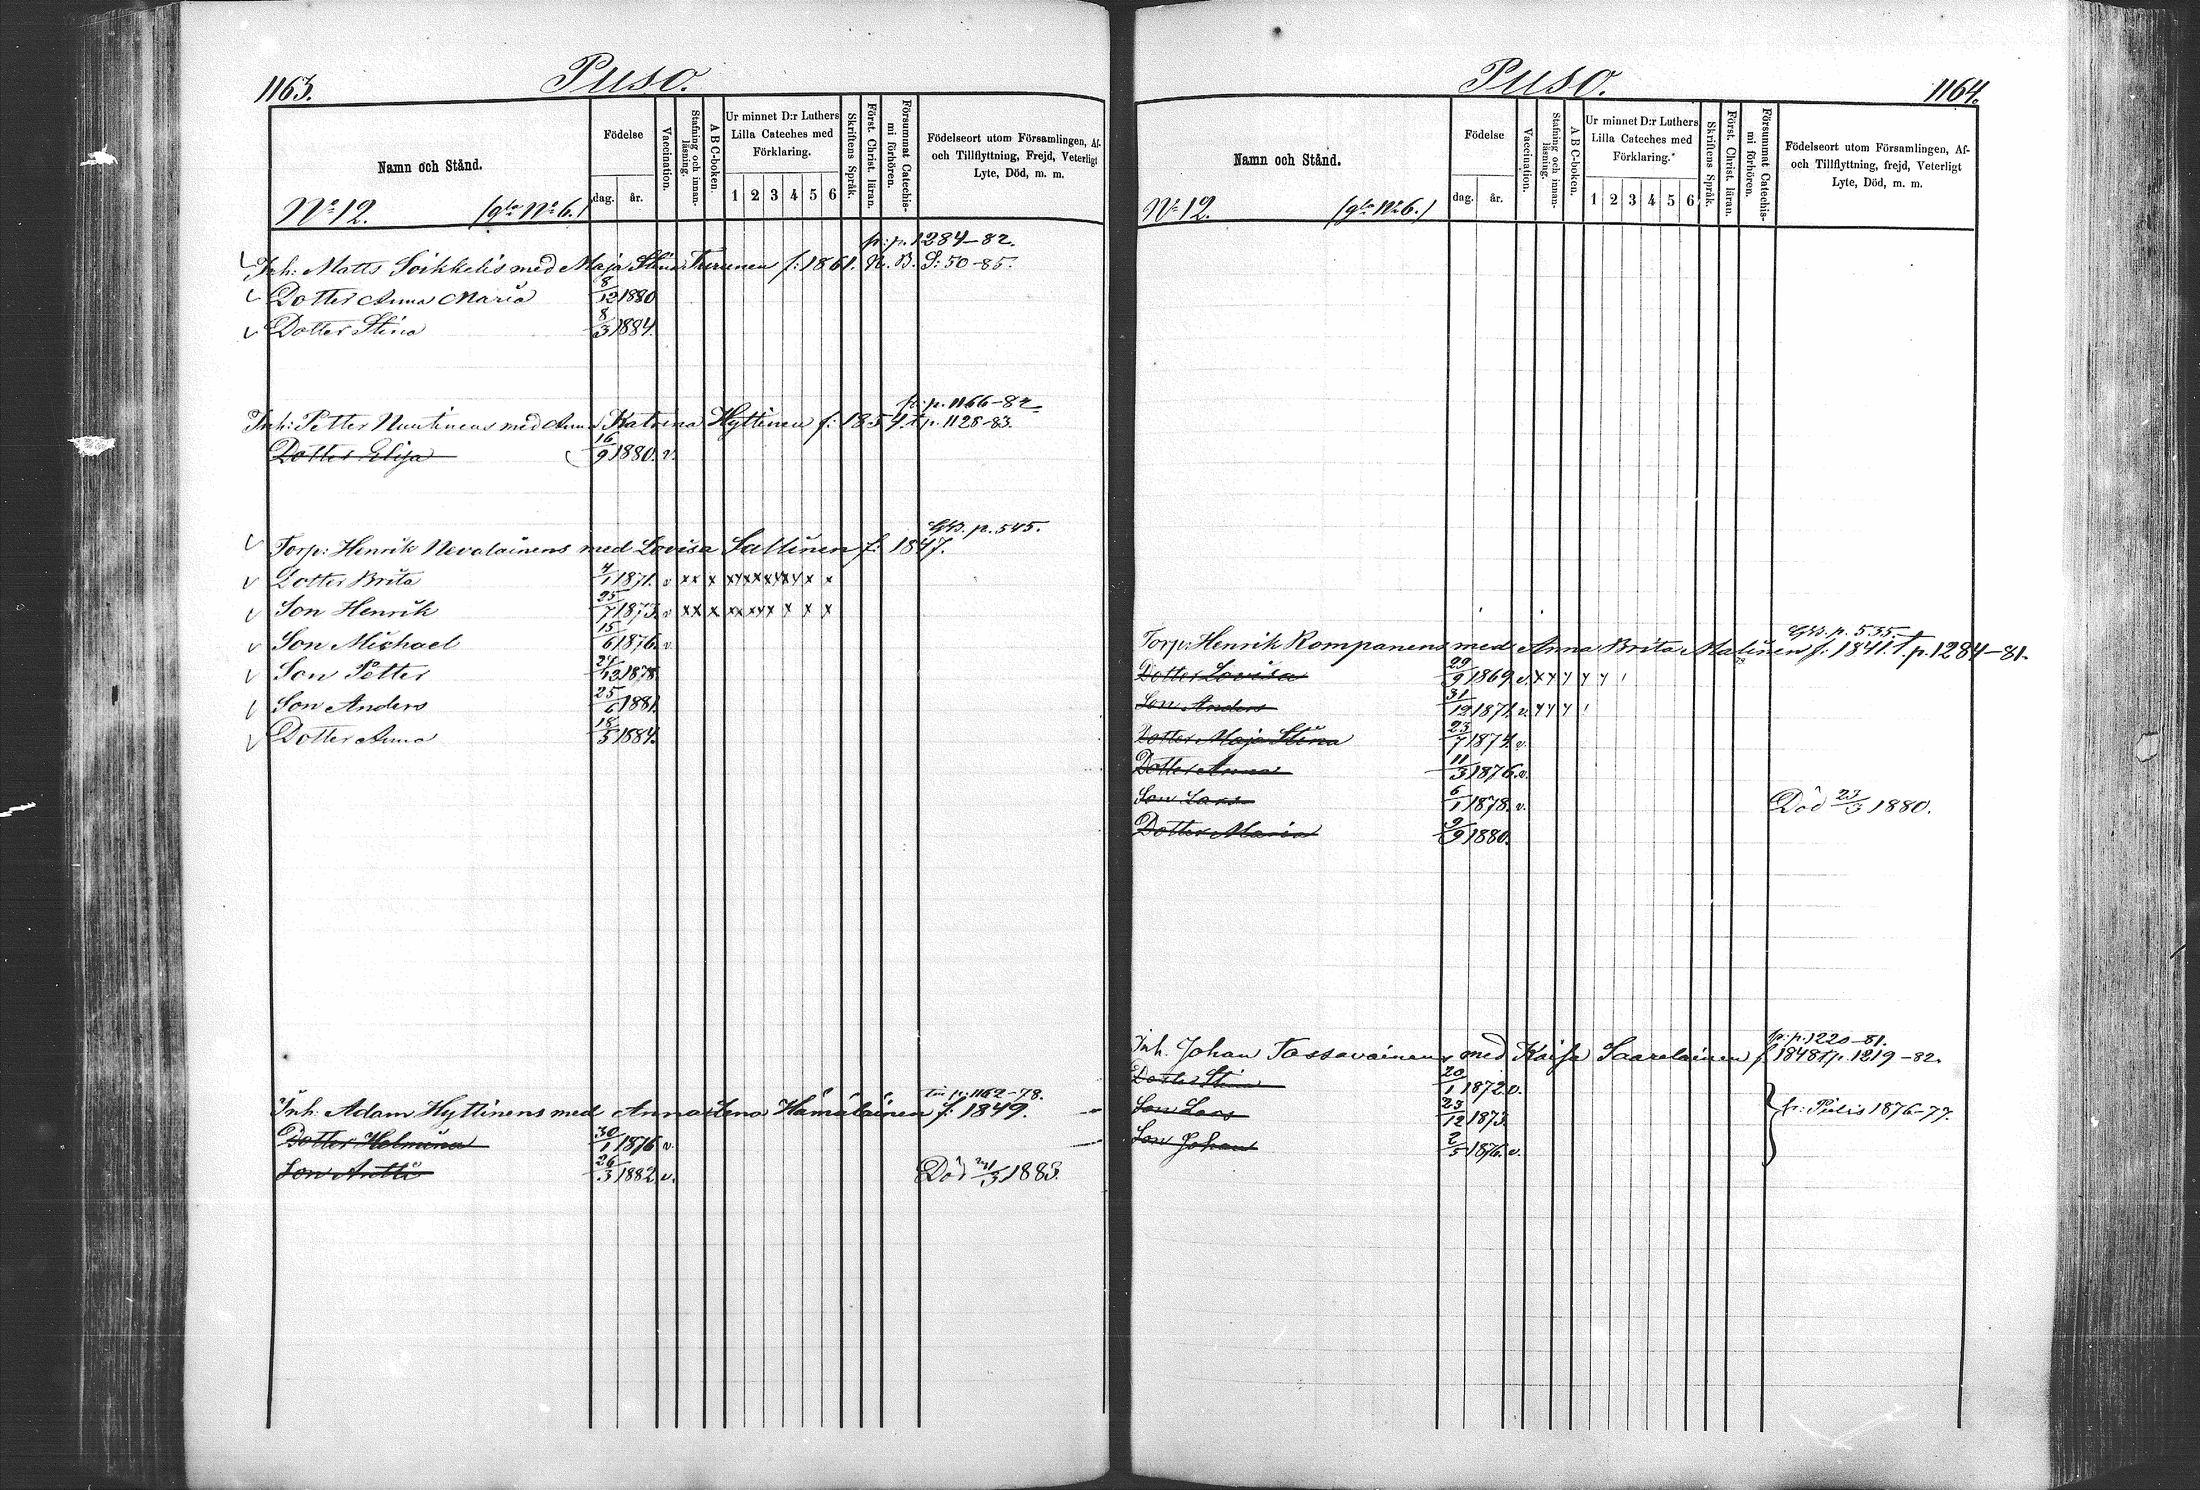 1163.
Puso.
Namn och Stånd.
Födelse
dag. år.
Vaccination.
Stafning och innanläsning.
A B C-boken.
Ur minnet D:r Luthers Lilla Cateches med Förklaring.
1 2 3 4 5 6
Skriftens Språk.
Först. Christ. läran.
Försummat Catechismi förhören.
Födelseort utom Församlingen, Af-
och Tillflyttning, Frejd, Veterligt
Lyte, Död, m. m.
No 12. (gla No 6.)
fr: p. 1284-82.
Inh: Matts Soikkelis med Maja Stina Turunen f: 1861. N. B. S: 50-85.
Dotter Anna Maria 8/12 1880
Dotter Stina 8/3 1884.
fr: p. 1166-82
Inh: Petter Nuutinens med Anna Katrina Hyttinen f: 1854. t p. 1128-83.
Dotter Elisa 16/9 1880. v.
GB. p. 545.
Torp: Henrik Nevalainens med Lovisa Sallinen f: 1847.
Dotter Brita 4/1 1871. v xx x xx xx xx xx x x
Son Henrik 25/7 1873. v xx x xx xx x x x
Son Michael 15/6 1876. v
Son Petter 24/12 1878
Son Anders 25/6 1881.
Dotter Anna 18/5 1884.
Till p: 1162-78.
Inh: Adam Hyttinens med Anna Lena Hämäläinen f: 1849.
Dotter Helmina 30/1 1876 v.
Son Antti 26/3 1882 v. Död 1883.
Puso.
1164.
Namn och Stånd.
Födelse
dag. år.
Vaccination.
Stafning och innanläsning.
A B C-boken.
Ur minnet D:r Luthers Lilla Cateches med Förklaring.
1 2 3 4 5 6
Skriftens Språk.
Först. Christ. läran.
Försummat Catechismi förhören.
Födelseort utom Församlingen, Af-
och Tillflyttning, frejd, Veterligt
Lyte, Död, m. m.
No 12. (gla No 6.)
GB. p. 535.
Torp: Henrik Rompanens med Anna Brita Malinen f: 1841. t p. 1284-81.
Dotter Lovisa 29/9 1869 v.
Son Anders 31/12 1871. v.
Dotter Maja Stina 23/7 1874. v.
Dotter Anna 11/3 1876. v.
Son Lars 6/1 1878. v. Död 23/3 1880.
Dotter Maria 9/9 1880.
fr: p. 1220-81.
Inh. Johan Tossavainens med Kaisa Saarelainen f. 1848 t p. 1219-82.
Dotter Stina 20/1 1872. v.
Son Lars 23/12 1873. fr: Pielis 1876-77.
Son Johan 2/5 1876. v.